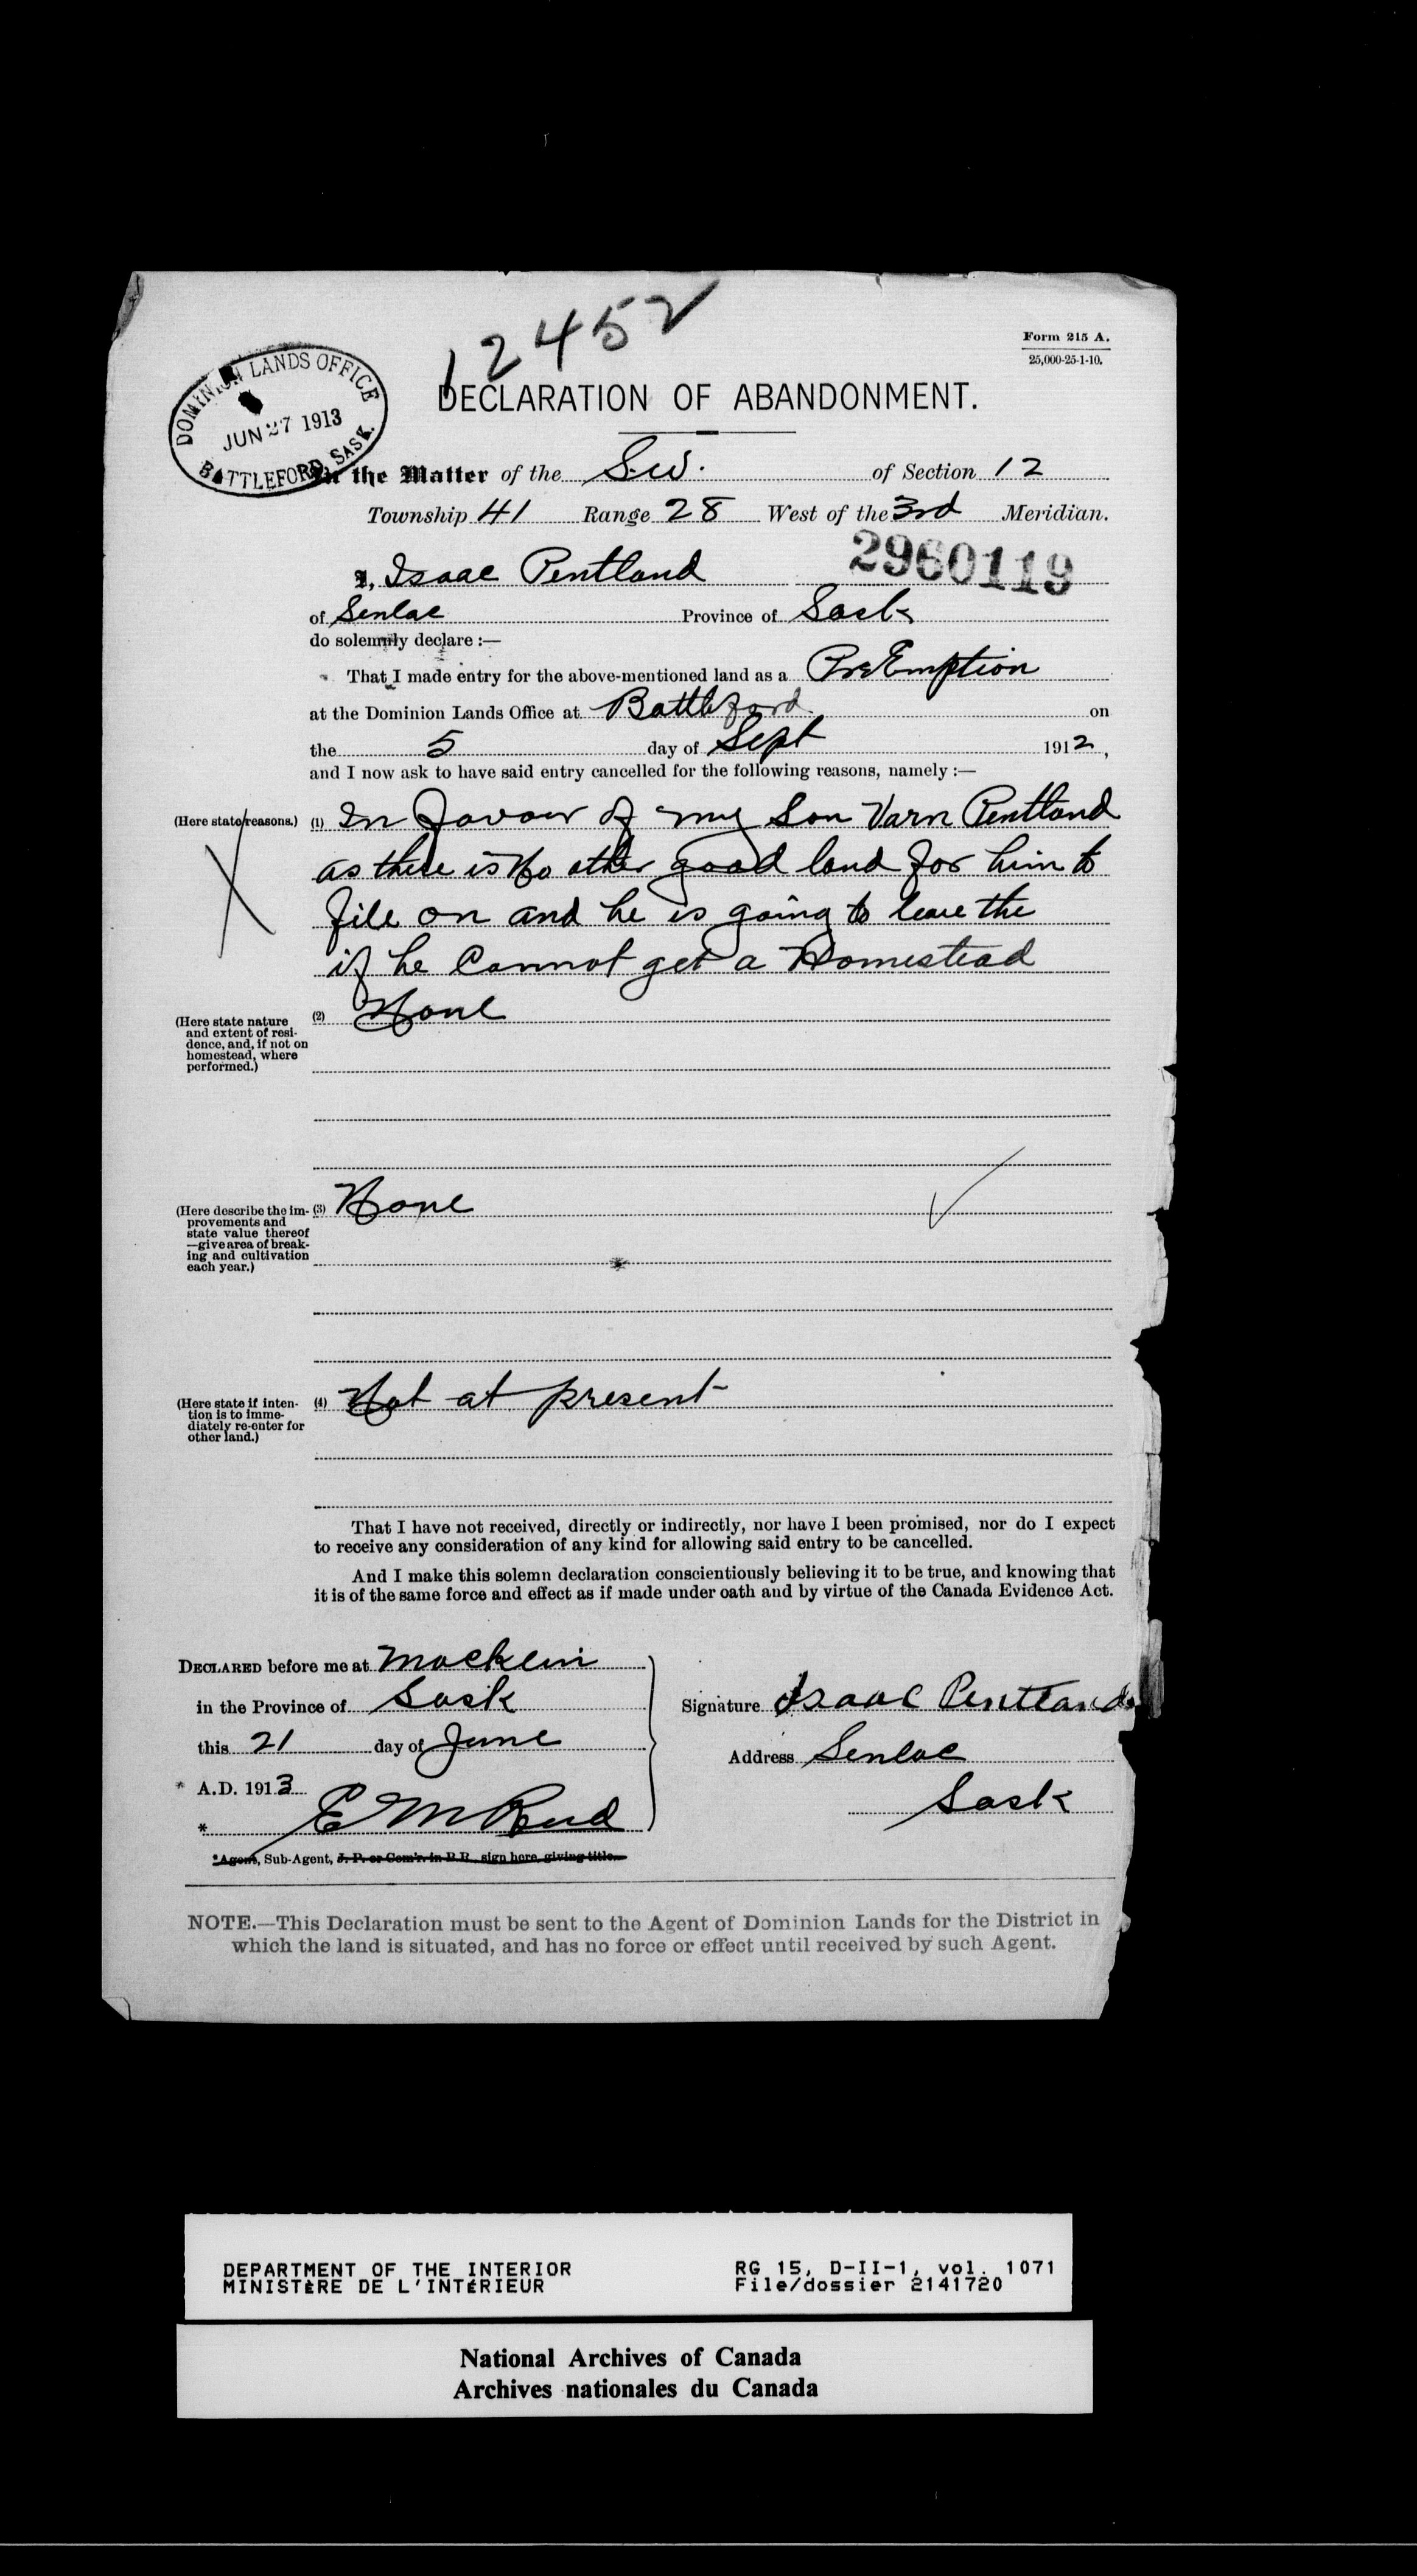 12452
Form 215 A.
25,000-25-1-10.
DOMINION LANDS OFFICE
JUN 27 1913
BATTLEFORD, SASK.
DECLARATION OF ABANDONMENT.
In the Matter of the S.W. of Section 12
Township 41 Range 28 West of the 3rd Meridian.
2960119
I, Isaac Pentland
of Senlac Province of Sask
do solemnly declare :—
That I made entry for the above-mentioned land as a PreEmption
at the Dominion Lands Office at Battleford on
the 5 day of Sept 1912,
and I now ask to have said entry cancelled for the following reasons, namely :—
(Here state reasons.) (1) In favour of my Son Varn Pentland
as there is No other good land for him to
file on and he is going to leave the
if he Cannot get a Homestead
(Here state nature
and extent of resi-
dence, and, if not on
homestead, where
performed.)
(2) None
(Here describe the im-
provements and
state value thereof
—give area of break-
ing and cultivation
each year.)
(3) None
(Here state if inten-
tion is to imme-
diately re-enter for
other land.)
(4) Not at present
That I have not received, directly or indirectly, nor have I been promised, nor do I expect
to receive any consideration of any kind for allowing said entry to be cancelled.
And I make this solemn declaration conscientiously believing it to be true, and knowing that
it is of the same force and effect as if made under oath and by virtue of the Canada Evidence Act.
DECLARED before me at Macklin
in the Province of Sask
this 21 day of June
A.D. 1913
* E M Reid
*Agent, Sub-Agent, J. P. or Com'r. in B.R., sign here, giving title.
Signature Isaac Pentland
Address Senlac
Sask
NOTE.—This Declaration must be sent to the Agent of Dominion Lands for the District in
which the land is situated, and has no force or effect until received by such Agent.
DEPARTMENT OF THE INTERIOR
MINISTÈRE DE L'INTÉRIEUR
RG 15, D-II-1, vol. 1071
File/dossier 2141720
National Archives of Canada
Archives nationales du Canada